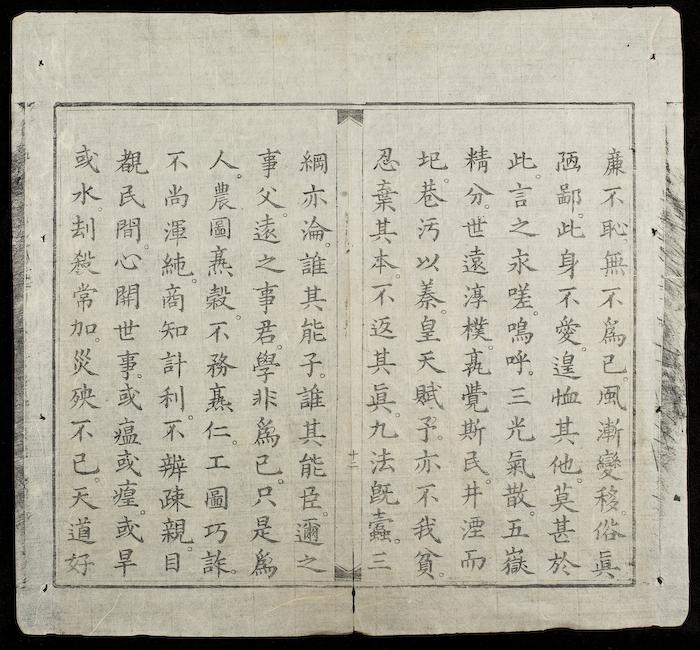 廉不恥。無不爲已。風漸變移。俗眞
陋鄙。此身不愛。遑恤其他。莫甚於
此。言之永嗟。嗚呼。三光氣散。五嶽
精分。世遠淳樸。孰覺斯民。井湮而
圮。巷污以蓁。皇天賦予。亦不我貧。
忍棄其本。不返其眞。九法旣蠹。三
十二
綱亦淪。誰其能子。誰其能臣。邇之
事父。遠之事君。學非爲己。只是爲
人。農圖熟穀。不務熟仁。工圖巧詐。
不尚渾純。商知計利。不辨疎親。目
覩民間。心開世事。或瘟或。或旱
或水。刦殺常加。災殃不已。天道好